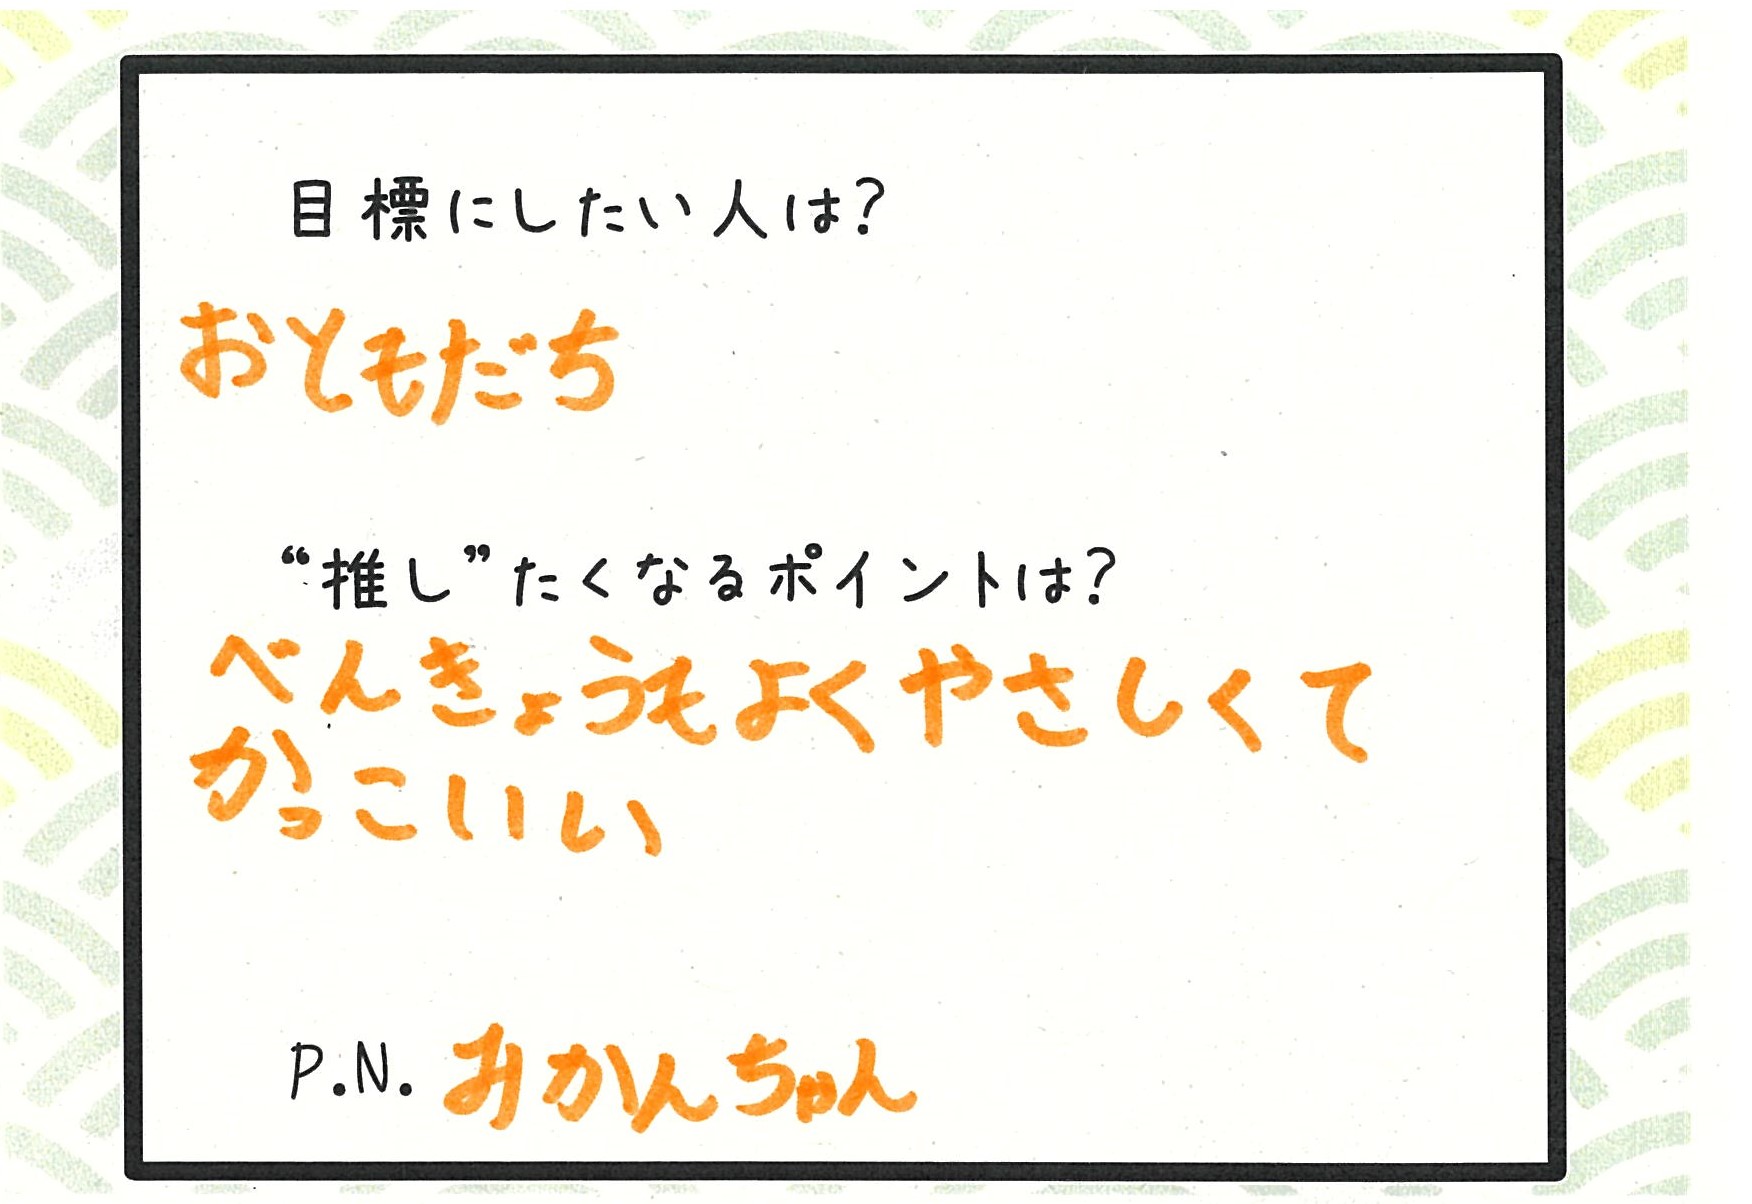 目標にしたい人は?
おともだち
“推し”たくなるポイントは?
べんきょうもよくやさしくて
かっこいい
P.N. みかんちゃん